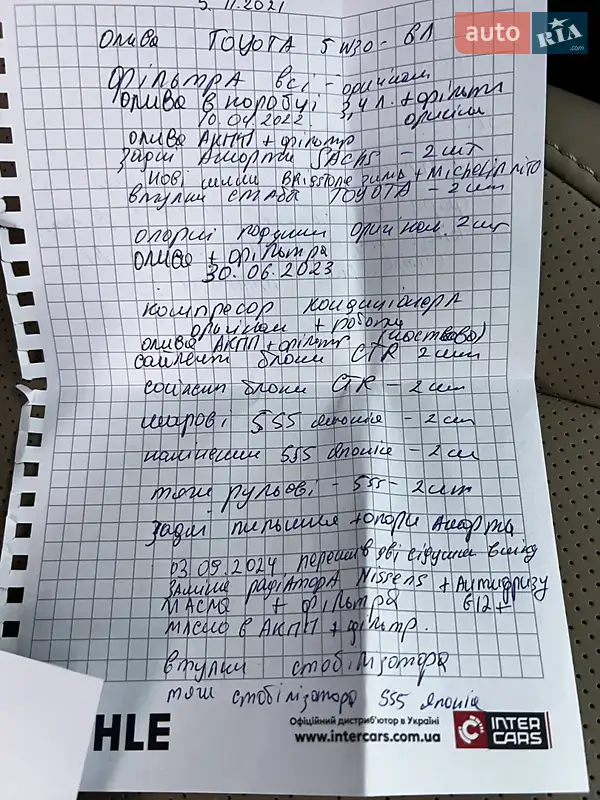 5.11.2021
auto RIA.com
Олива TOYOTA 5W30 - 6Л
Фільтра всі - оригінал
Олива в коробці 3,4 л. + фільтр
10.04.2022 оригінал
олива АКПП + фільтр
Задні Аморти SACHS - 2 шт
Нові шини + Michelin літо
втулки стаба TOYOTA - 2 шт
опорні подушки оригінал 2 шт
олива + фільтра
30.06.2023
компресор кондиціонера
оригінал + робота
олива АКПП + фільтр (часткова)
сайлент блоки CTR 2 шт
сайлент блоки CTR - 2 шт
шарові 555 Японія - 2 шт
555 Японія - 2 шт
тяги рульові - 555 - 2 шт
Задні пильники + опори Аморта
03.09.2024 дві
Заміна радіатора Nissens + Антифризу
Масла + фільтра G12+
масло в АКПП + фільтр.
втулки стабілізатора
тяги стабілізатора 555 Японія
HLE
Офіційний дистриб'ютор в Україні
www.intercars.com.ua
INTER CARS